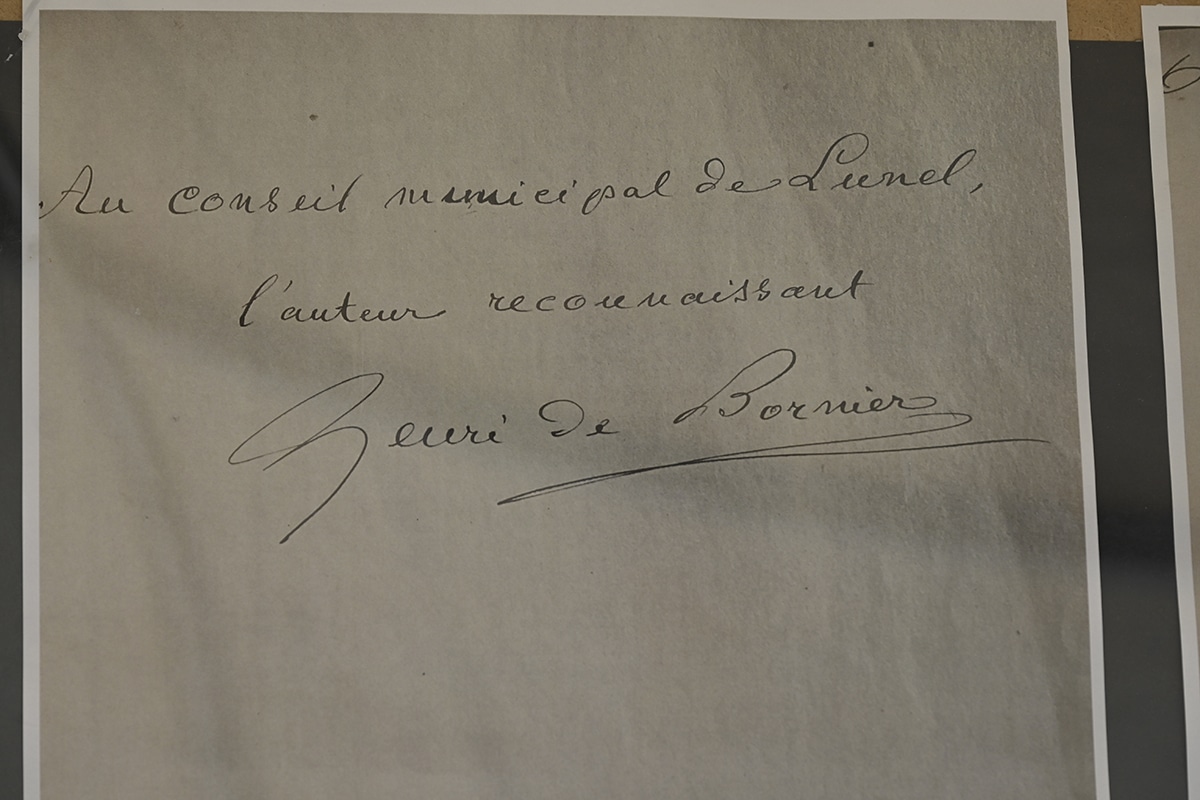 Au conseil municipal de Lunel,
l'auteur reconnaissant
Henri de Bornier